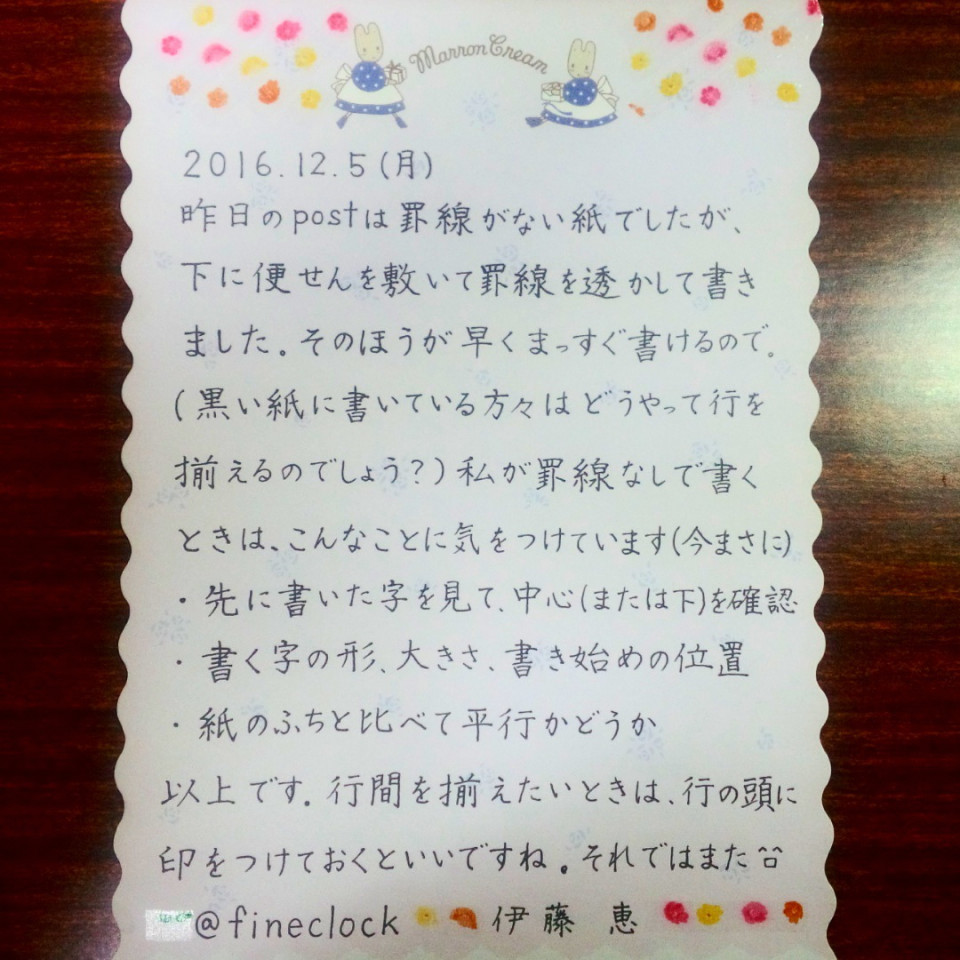 Marron Cream
2016.12.5(月)
昨日のpostは罫線がない紙でしたが、
下に便せんを敷いて罫線を透かして書き
ました。そのほうが早くまっすぐ書けるので。
(黒い紙に書いている方々はどうやって行を
揃えるのでしょう?)私が罫線なしで書く
ときは、こんなことに気をつけています(今まさに)
・先に書いた字を見て、中心(または下)を確認
・書く字の形、大きさ、書き始めの位置
・紙のふちと比べて平行かどうか
以上です。行間を揃えたいときは、行の頭に
印をつけておくといいですね。それではまた^^
@fineclock 伊藤 恵